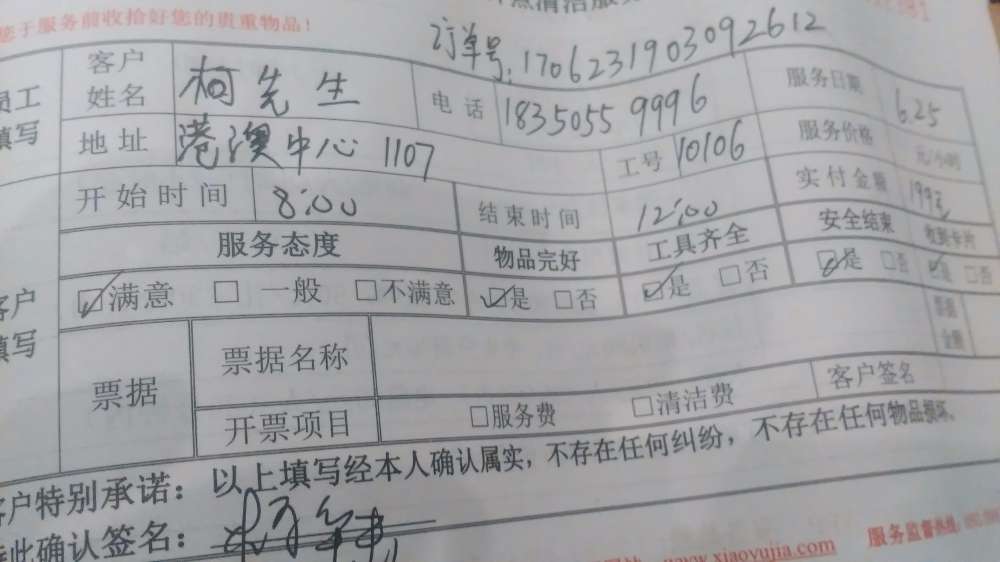 您于服务前收拾好您的贵重物品！
点清洁服务
订单号：1706231903092612
员工填写
客户姓名 柯先生 电话 18350559996 服务日期 6.25
地址 港澳中心 1107 工号 10106 服务价格 元/小时
开始时间 8:00 结束时间 12:00 实付金额 199元
服务态度 物品完好 工具齐全 安全结束 收到卡片
客户填写
☑满意 □一般 □不满意 ☑是 □否 ☑是 □否 ☑是 □否 ☑是 □否
票据 票据名称 票据金额
开票项目 □服务费 □清洁费 客户签名
客户特别承诺：以上填写经本人确认属实，不存在任何纠纷，不存在任何物品损坏。
此确认签名：
www.xiaoyujia.com 服务监督热线：